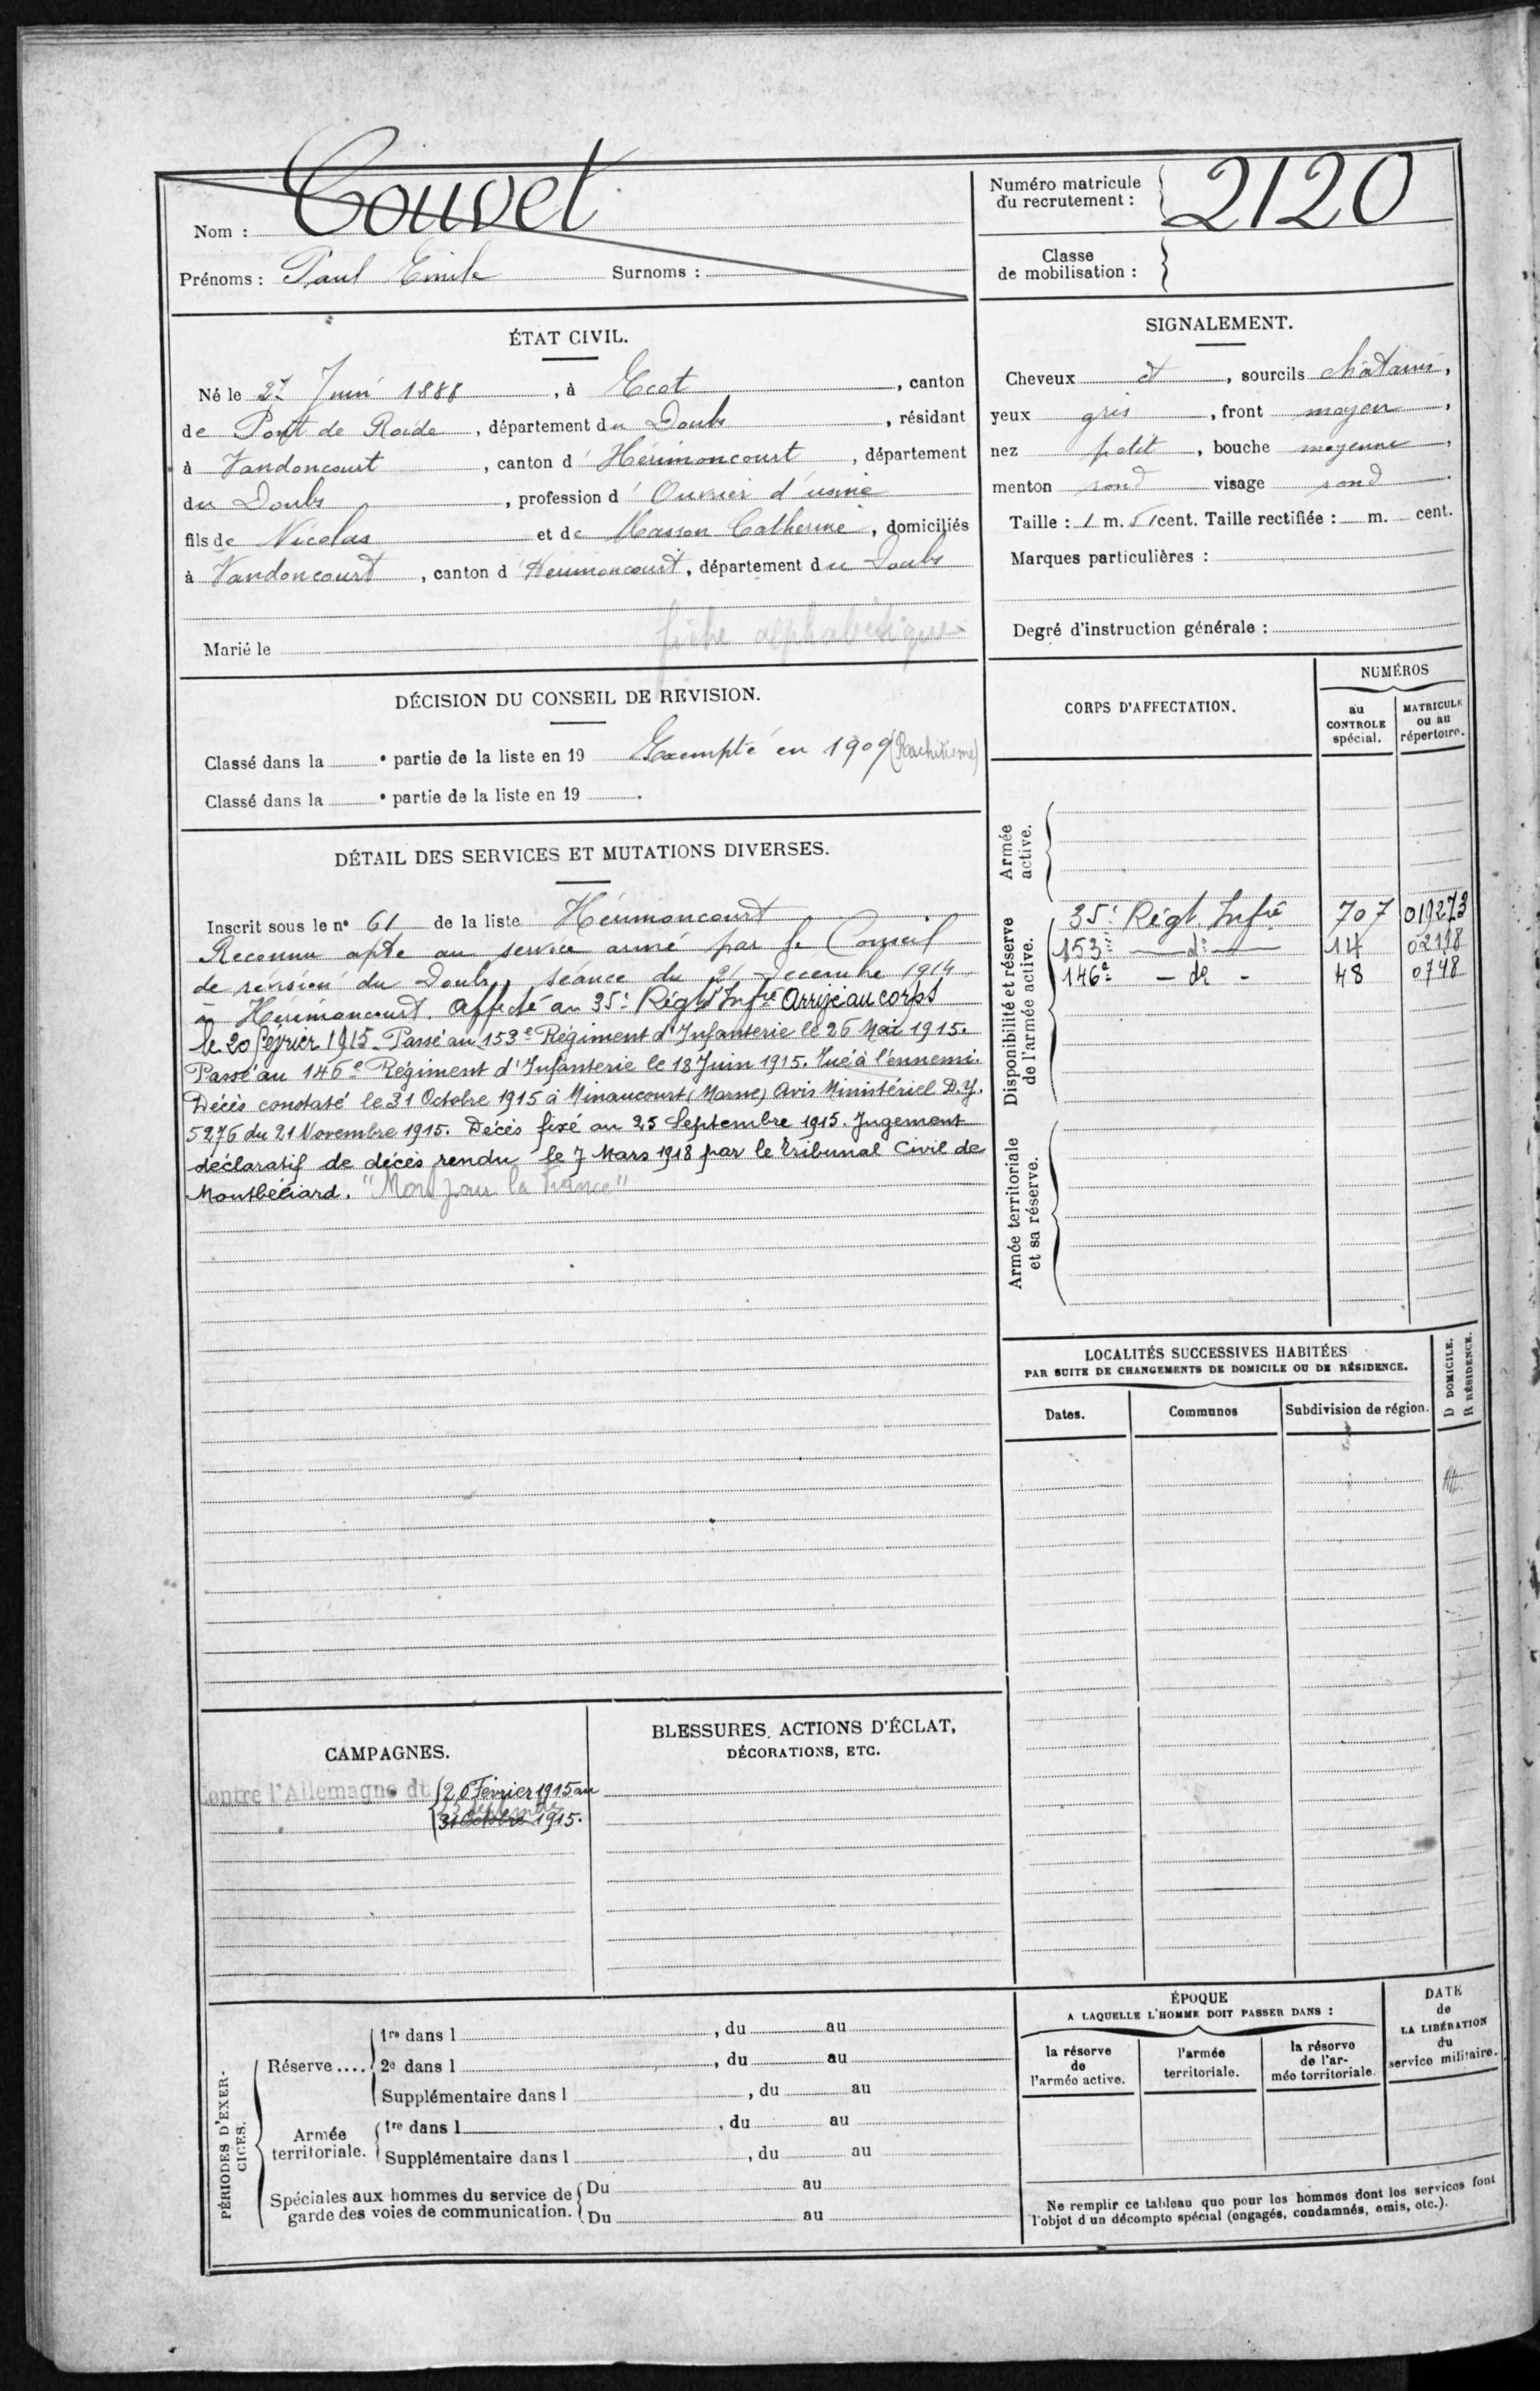 Nom : Couvet
Prénoms : Paul Emile Surnoms :
Numéro matricule du recrutement : 2120
Classe de mobilisation :
ÉTAT CIVIL.
Né le 27 Juin 1888, à Ecot, canton
de Pont de Roide, département du Doubs, résidant
à Vandoncourt, canton d'Hérimoncourt, département
du Doubs, profession d'Ouvrier d'usine
fils de Nicolas et de Masson Catherine, domiciliés
à Vandoncourt, canton d'Hérimoncourt, département du Doubs
fiche alphabétique
Marié le
SIGNALEMENT.
Cheveux et, sourcils châtains,
yeux gris, front moyen,
nez petit, bouche moyenne,
menton rond visage rond.
Taille : 1 m. 51 cent. Taille rectifiée : m. cent.
Marques particulières :
Degré d'instruction générale :
DÉCISION DU CONSEIL DE REVISION.
Classé dans la e partie de la liste en 19 Exempté en 1909 (Rachitisme)
Classé dans la e partie de la liste en 19 .
DÉTAIL DES SERVICES ET MUTATIONS DIVERSES.
Inscrit sous le n° 61 de la liste Hérimoncourt
Reconnu apte au service armé par le Conseil
de révision du Doubs, séance du 21 Décembre 1914
à Hérimoncourt. Affecté au 35e Régt Infie Arrivé au corps
le 20 février 1915. Passé au 153e Régiment d'Infanterie le 26 Mai 1915.
Passé au 146e Régiment d'Infanterie le 18 Juin 1915. Tué à l'ennemi.
Décès constaté le 31 Octobre 1915 à Minaucourt (Marne) Avis Ministériel D.Y.
5276 du 21 Novembre 1915. Décès fixé au 25 Septembre 1915. Jugement
déclaratif de décès rendu le 7 Mars 1918 par le tribunal Civil de
Montbéliard. "Mort pour la France"
CORPS D'AFFECTATION.
NUMÉROS
au CONTROLE spécial.
MATRICULE ou au répertoire.
Armée active.
Disponibilité et réserve de l'armée active.
35e Régt. Infie 707 019273
153e — do — 14 02118
146e - do - 48 0748
Armée territoriale et sa réserve.
LOCALITÉS SUCCESSIVES HABITÉES
PAR SUITE DE CHANGEMENTS DE DOMICILE OU DE RÉSIDENCE.
D DOMICILE.
R RÉSIDENCE.
Dates. Communes Subdivision de région.
CAMPAGNES.
Contre l'Allemagne du 20 Février 1915 au
25 septembre
31 Octobre 1915.
BLESSURES, ACTIONS D'ÉCLAT,
DÉCORATIONS, ETC.
PÉRIODES D'EXERCICES.
Réserve....
1re dans l , du au
2e dans l , du au
Supplémentaire dans l , du au
Armée territoriale.
1re dans l , du au
Supplémentaire dans l , du au
Spéciales aux hommes du service de
garde des voies de communication.
Du au
Du au
ÉPOQUE
A LAQUELLE L'HOMME DOIT PASSER DANS :
la réserve de l'armée active.
l'armée territoriale.
la réserve de l'armée territoriale.
DATE de LA LIBÉRATION du service militaire.
Ne remplir ce tableau que pour les hommes dont les services font
l'objet d'un décompte spécial (engagés, condamnés, omis, etc.).